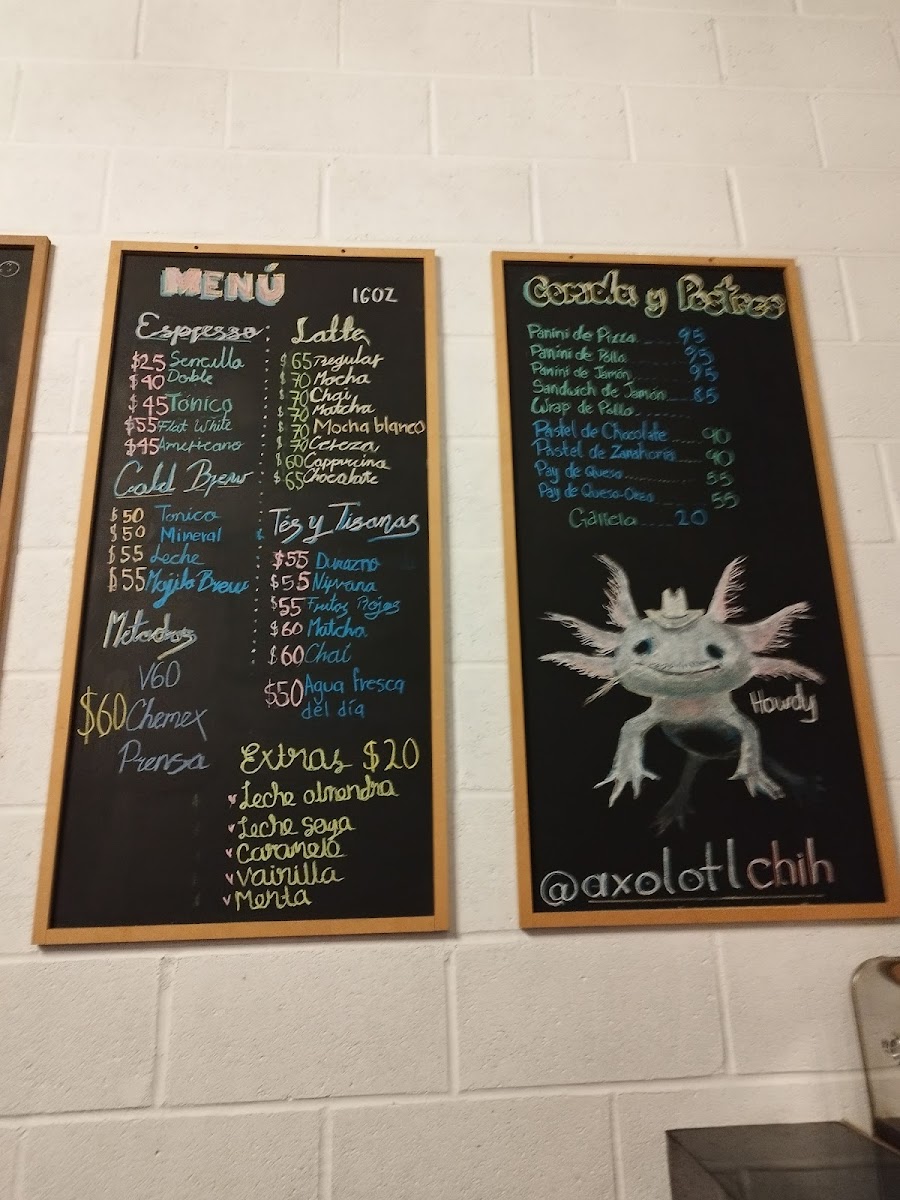 MENÚ
16OZ
Espresso
$25 Sencillo
$40 Doble
$45 Tónico
$55 Flat White
$45 Americano
Cold Brew
$50 Tonico
$50 Mineral
$55 Leche
$55 Mojito Brew
Metodos
V60
$60 Chemex
Prensa
Latte
$65 Regular
$70 Mocha
$70 Chai
$70 Matcha
$70 Mocha blanco
$70 Cereza
$60 Cappucino
$65 Chocolate
Tés y Tisanas
$55 Durazno
$55 Nirvana
$55 Frutos Rojos
$60 Matcha
$60 Chai
$50 Agua fresca
del día
Extras $20
Leche almendra
Leche Soya
Caramelo
Vainilla
Menta
Comida y Postres
Panini de Pizza ..... 95
Panini de Pollo ..... 95
Panini de Jamón ..... 95
Sandwich de Jamón ..... 85
Wrap de Pollo .....
Pastel de Chocolate ..... 90
Pastel de Zanahoria ..... 90
Pay de Queso ..... 55
Pay de Queso-Oreo ..... 55
Galleta ..... 20
Howdy
@axolotlchih